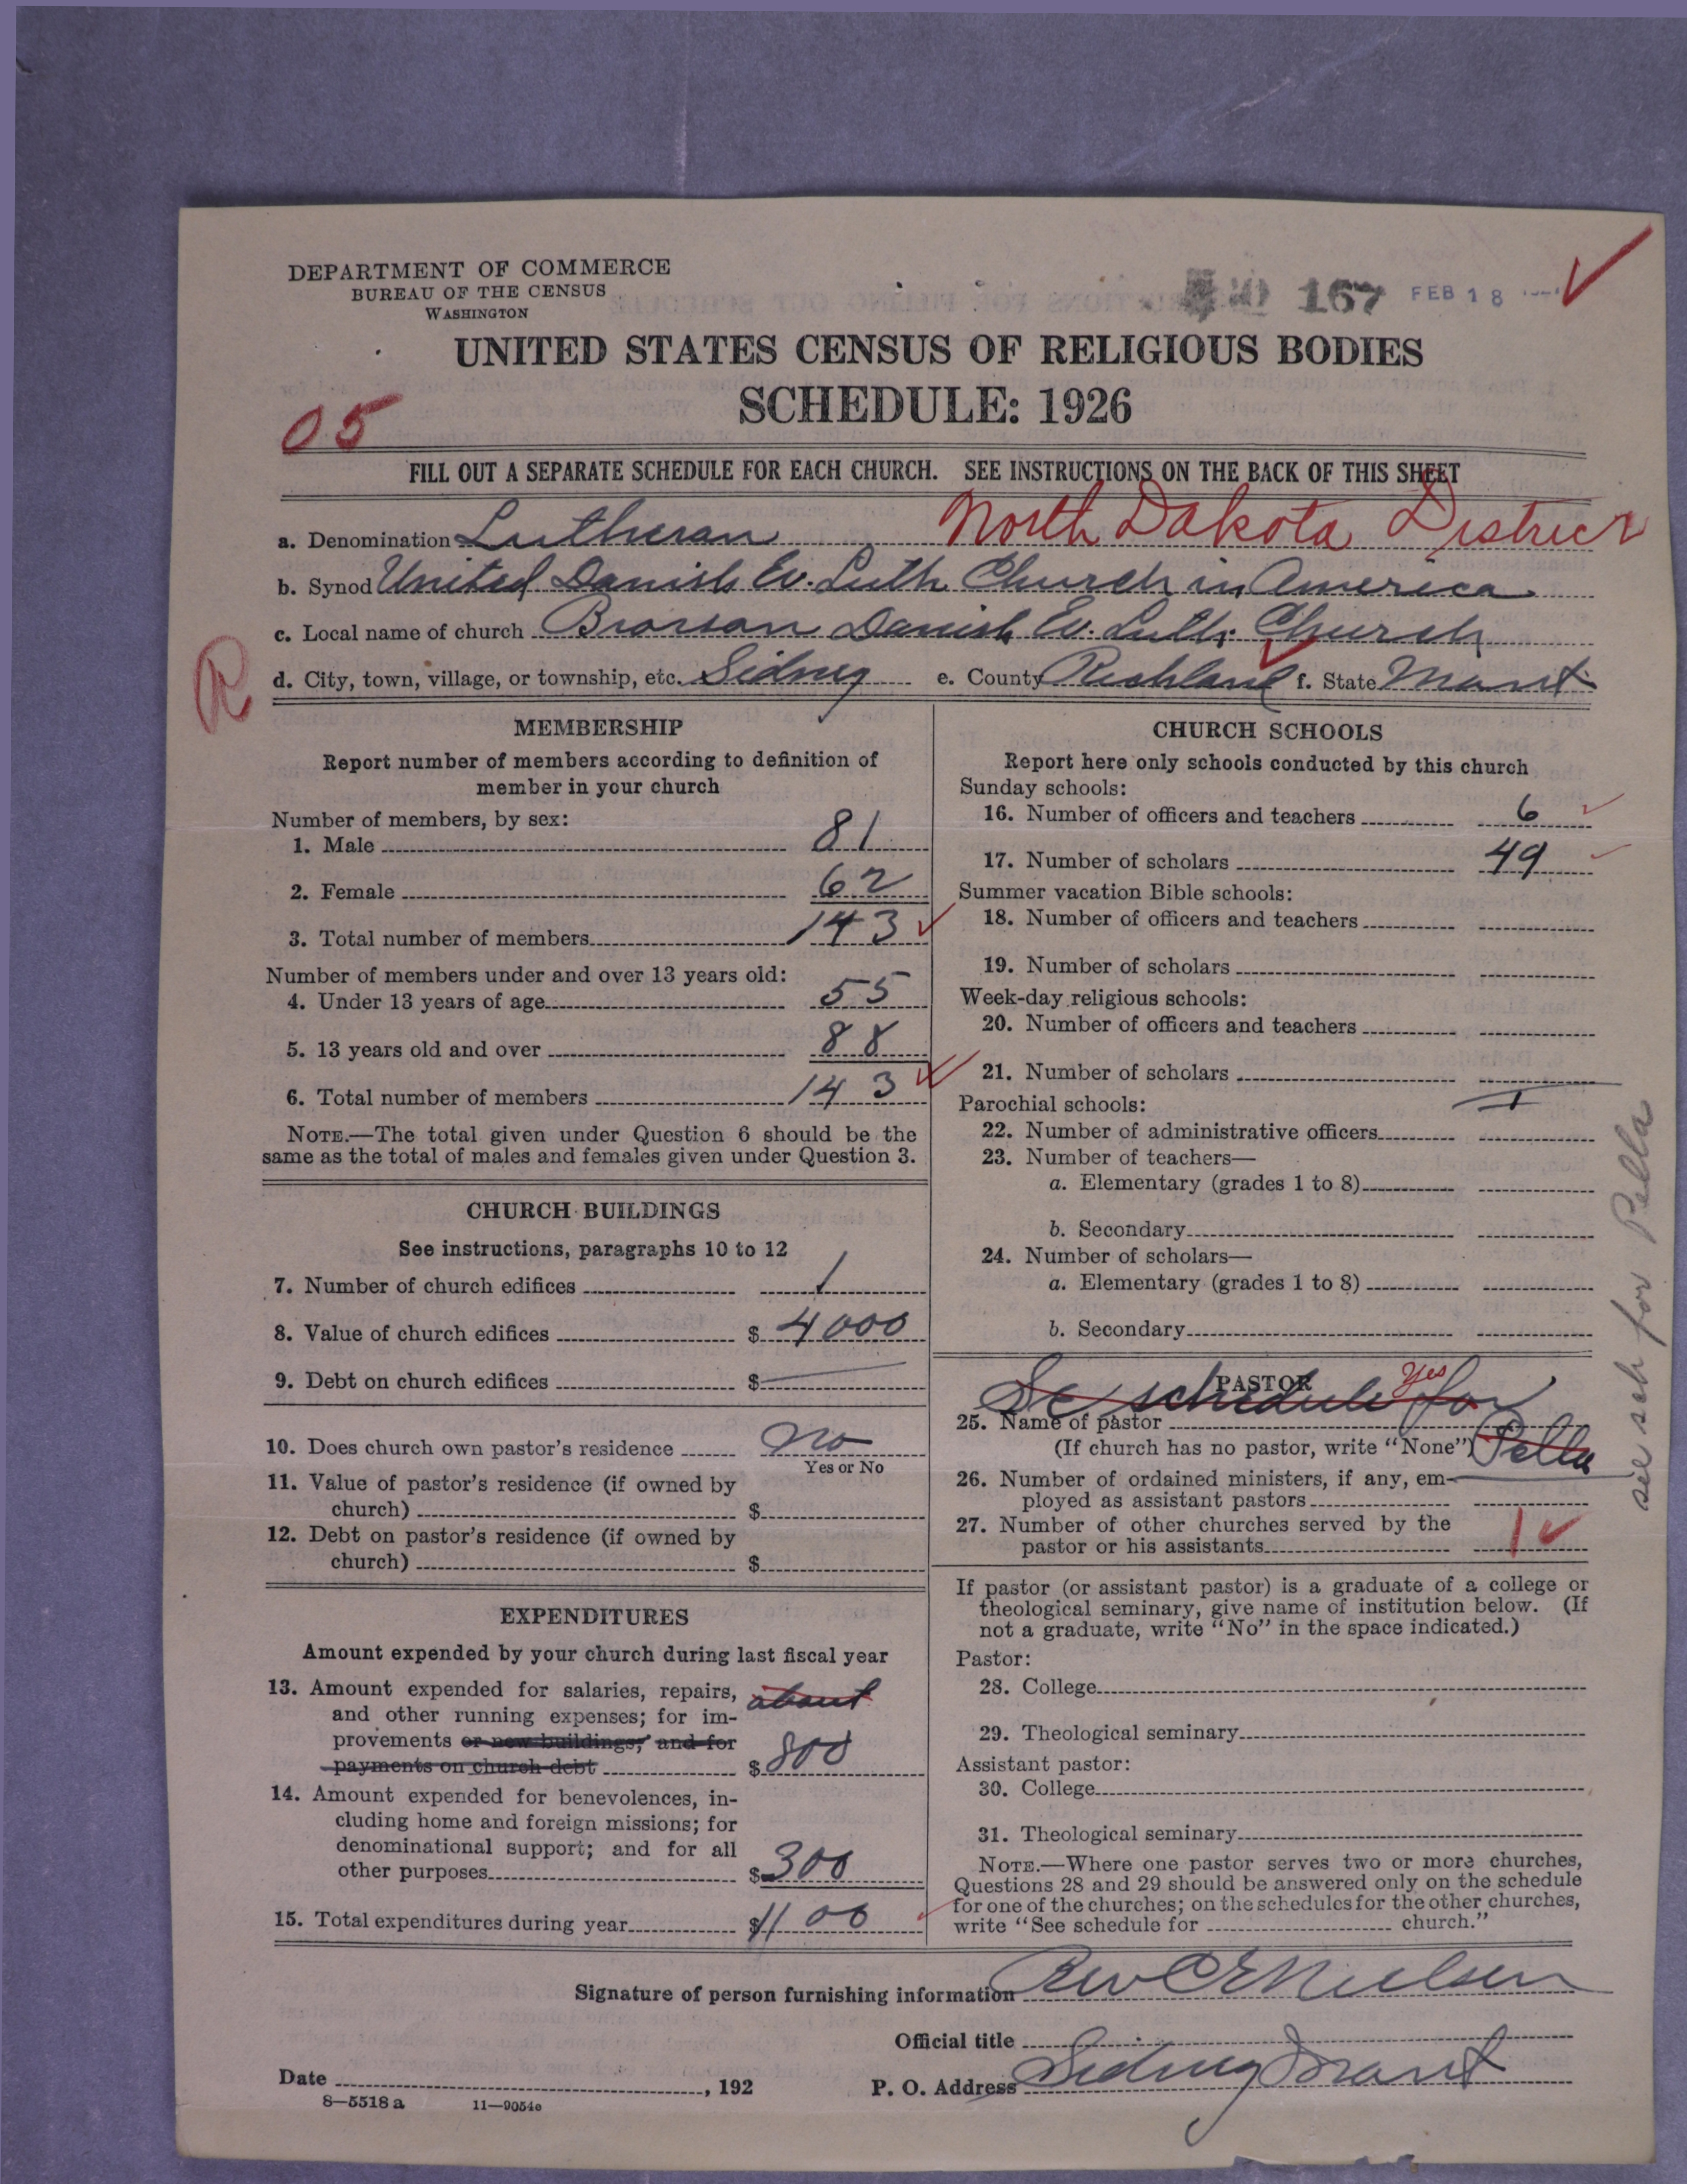 DEPARTMENT OF COMMERCE
BUREAU OF THE CENSUS
WASHINGTON
167 FEB 18
UNITED STATES CENSUS OF RELIGIOUS BODIES
SCHEDULE: 1926
05
FILL OUT A SEPARATE SCHEDULE FOR EACH CHURCH. SEE INSTRUCTIONS ON THE BACK OF THIS SHEET
North Dakota District
a. Denomination Lutheran
b. Synod United Danish Ev. Luth Church in America
c. Local name of church Brorson Danish Ev. Luth. Church
R
d. City, town, village, or township, etc. Sidney e. County Richland f. State Mont.
MEMBERSHIP
Report number of members according to definition of
member in your church
Number of members, by sex:
1. Male 81
2. Female 62
3. Total number of members 143
Number of members under and over 13 years old:
4. Under 13 years of age 55
5. 13 years old and over 88
6. Total number of members 143
NOTE.—The total given under Question 6 should be the
same as the total of males and females given under Question 3.
CHURCH BUILDINGS
See instructions, paragraphs 10 to 12
7. Number of church edifices 1
8. Value of church edifices $ 4000
9. Debt on church edifices $ —
10. Does church own pastor's residence No
Yes or No
11. Value of pastor's residence (if owned by
church) $
12. Debt on pastor's residence (if owned by
church) $
EXPENDITURES
Amount expended by your church during last fiscal year
13. Amount expended for salaries, repairs, about
and other running expenses; for im-
provements or new buildings; and for
payments on church debt $ 800
14. Amount expended for benevolences, in-
cluding home and foreign missions; for
denominational support; and for all
other purposes $ 300
15. Total expenditures during year $ 1100
CHURCH SCHOOLS
Report here only schools conducted by this church
Sunday schools:
16. Number of officers and teachers 6
17. Number of scholars 49
Summer vacation Bible schools:
18. Number of officers and teachers
19. Number of scholars
Week-day religious schools:
20. Number of officers and teachers
21. Number of scholars
Parochial schools:
22. Number of administrative officers
23. Number of teachers—
a. Elementary (grades 1 to 8)
b. Secondary
24. Number of scholars—
a. Elementary (grades 1 to 8)
b. Secondary
PASTOR
Se schedule for Yes
25. Name of pastor
(If church has no pastor, write "None") Pella
26. Number of ordained ministers, if any, em-
ployed as assistant pastors
27. Number of other churches served by the
pastor or his assistants 1
If pastor (or assistant pastor) is a graduate of a college or
theological seminary, give name of institution below. (If
not a graduate, write "No" in the space indicated.)
Pastor:
28. College
29. Theological seminary
Assistant pastor:
30. College
31. Theological seminary
NOTE.—Where one pastor serves two or more churches,
Questions 28 and 29 should be answered only on the schedule
for one of the churches; on the schedules for the other churches,
write "See schedule for church."
sch for Pella
Signature of person furnishing information Rev C E Nielsen
Official title
Date , 192
P. O. Address Sidney Mont
8—5518 a 11—9054e